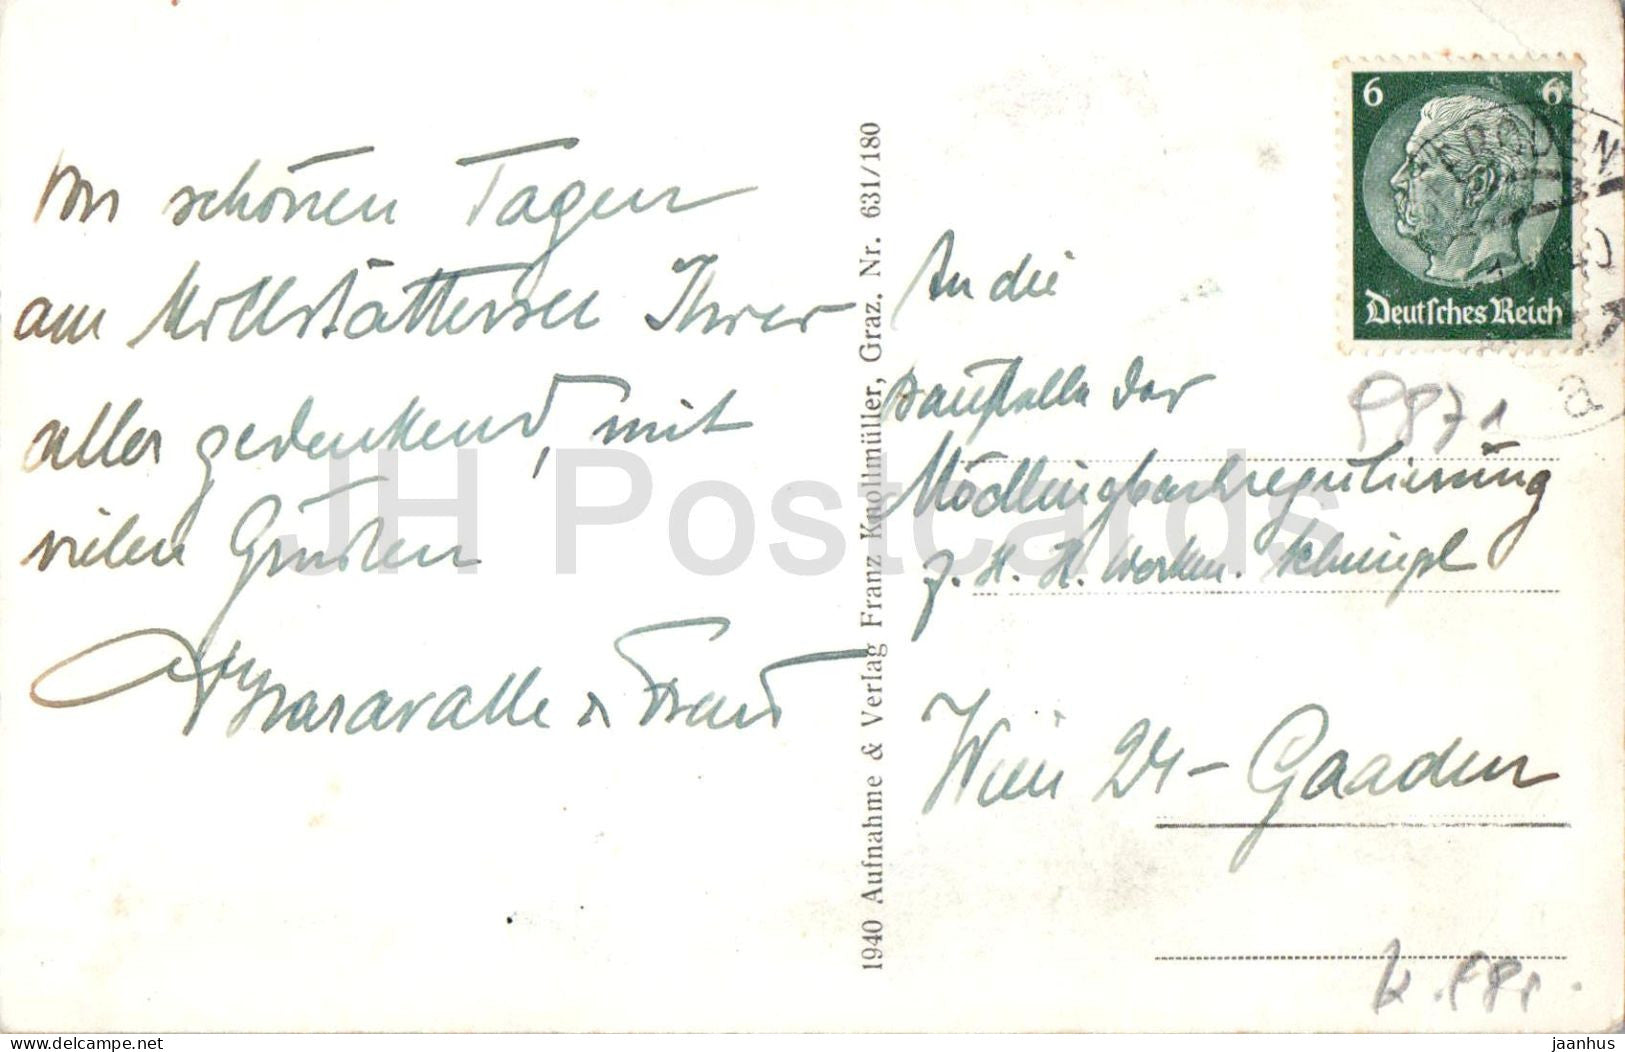 Von schönen Tagen
am Millstättersee Ihrer
aller gedenkend, mit
vielen Grüßen
Baravalle u Frau
1940 Aufnahme & Verlag Franz Knollmüller, Graz. Nr. 631/180
6 6
Deutsches Reich
An die
Baustelle der
Mödlingbachregulierung
z. H. H.
Wien 24 – Gaaden
JH Postcards
delcampe.net
jaanhus